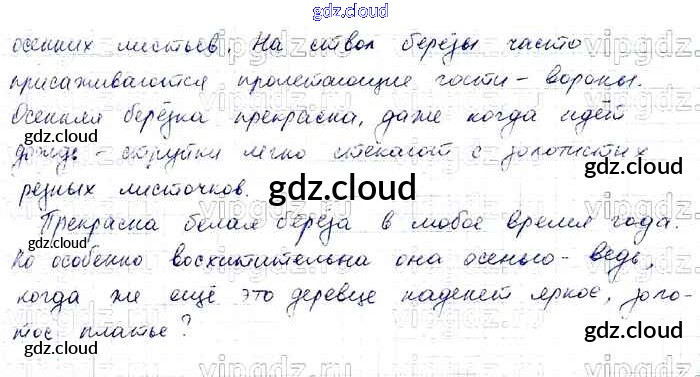 gdz.cloud
осенних листьев. На ствол берёзы часто
присаживаются пролетающие гости - вороны.
Осенняя берёзка прекрасна, даже когда идёт
gdz.cloud
дождь - струйки легко стекают с золотистых
gdz.cloud
резных листочков.
gdz.cloud
Прекрасна белая берёза в любое время года.
gdz.cloud
gdz.cloud
Но особенно восхитительна она осенью - ведь,
когда же ещё это деревце наденет яркое, золо-
тое платье?
gdz.cloud
gdz.cloud